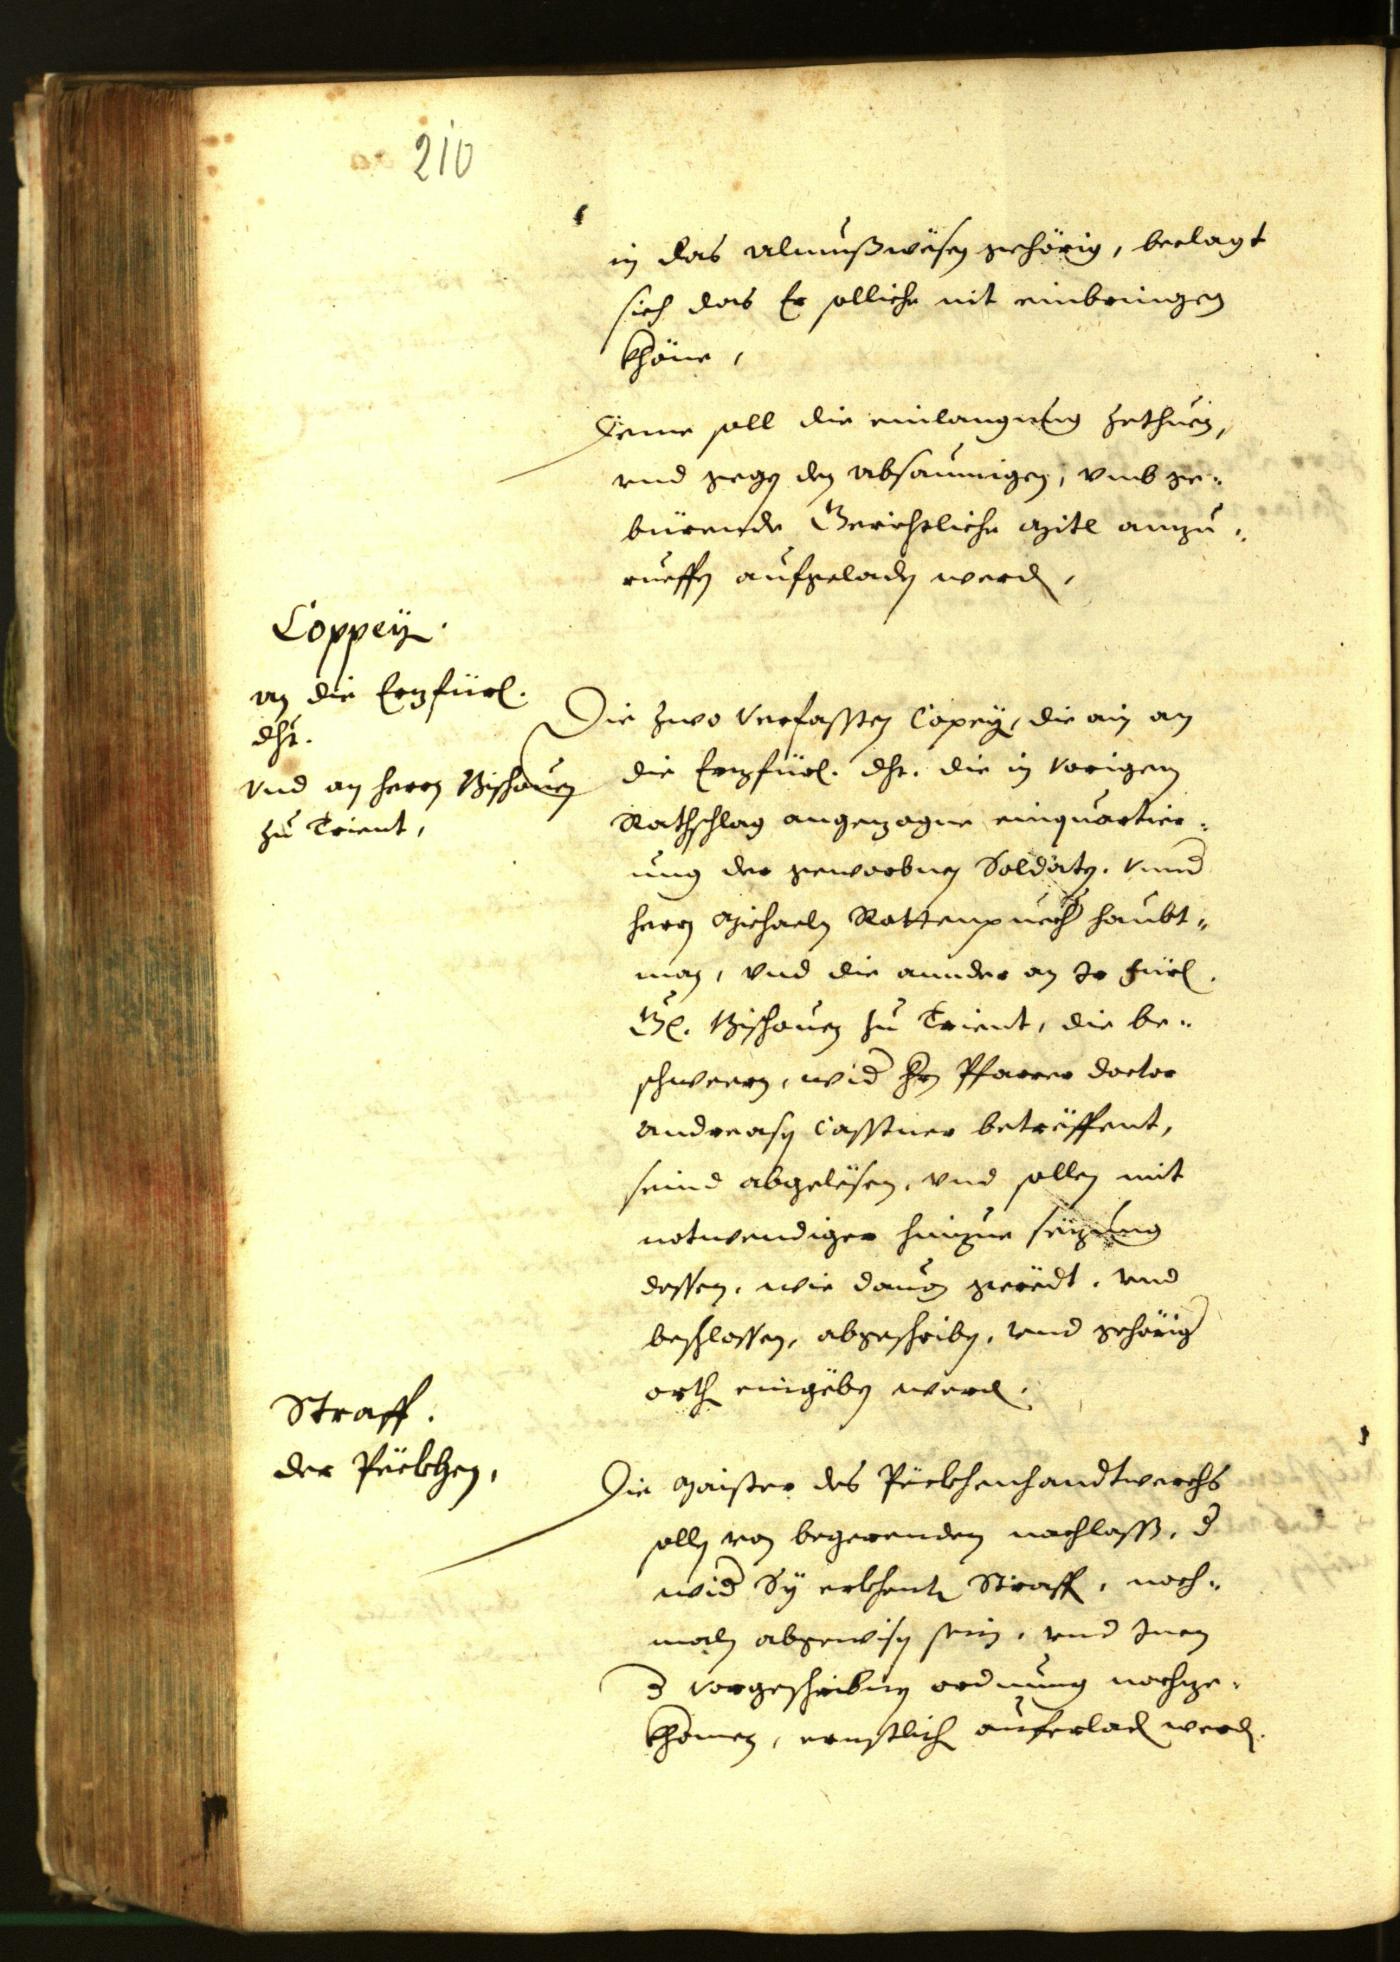 210
in das Almuß wësen gehörig, beclagt
sich das Er solliche nit einbringen
khöne,
Deme soll die einlangung zethuen,
vnd gegen den absaumigen, vmb ge¬
bürende Gerichtliche mitl anzu¬
rueffen aufgeladen werden,
Coppey.
an die Erzfürl.
dht.
Vnd an herrn Bischouen
zu Trient,
Die zwo verfassten Copey, die ain an
die Erzfürl. dht. die in vorigem
Rathschlag angezogne einquartier¬
ung der geworbnen Soldaten, vnnd
herrn Michaeln Rottenpuech haubt¬
man, vnd die annder an Ir Fürl.
Gl. Bischouen zu Trient, die be¬
schweern, wider hern Pfarrer doctor
Andreasen Casstner betröffent,
seind abgelësen, vnd sollen mit
notwendiger hinzue setzung
dessen, wie dauon gerëdt, vnd
beschlossen, abgeschriben, vnnd gehörig
orth eingëben werden.
Straff.
der Pëckhen,
Die Maister des Pëckhenhandtwerchs
sollen von begerenden nachlass, der
wider Sy erkhente Straff, noch¬
maln abgewisen sein, vnd Inen
der vorgeschribnen ordnung nachze¬
khomen, ernstlich auferladen werden.